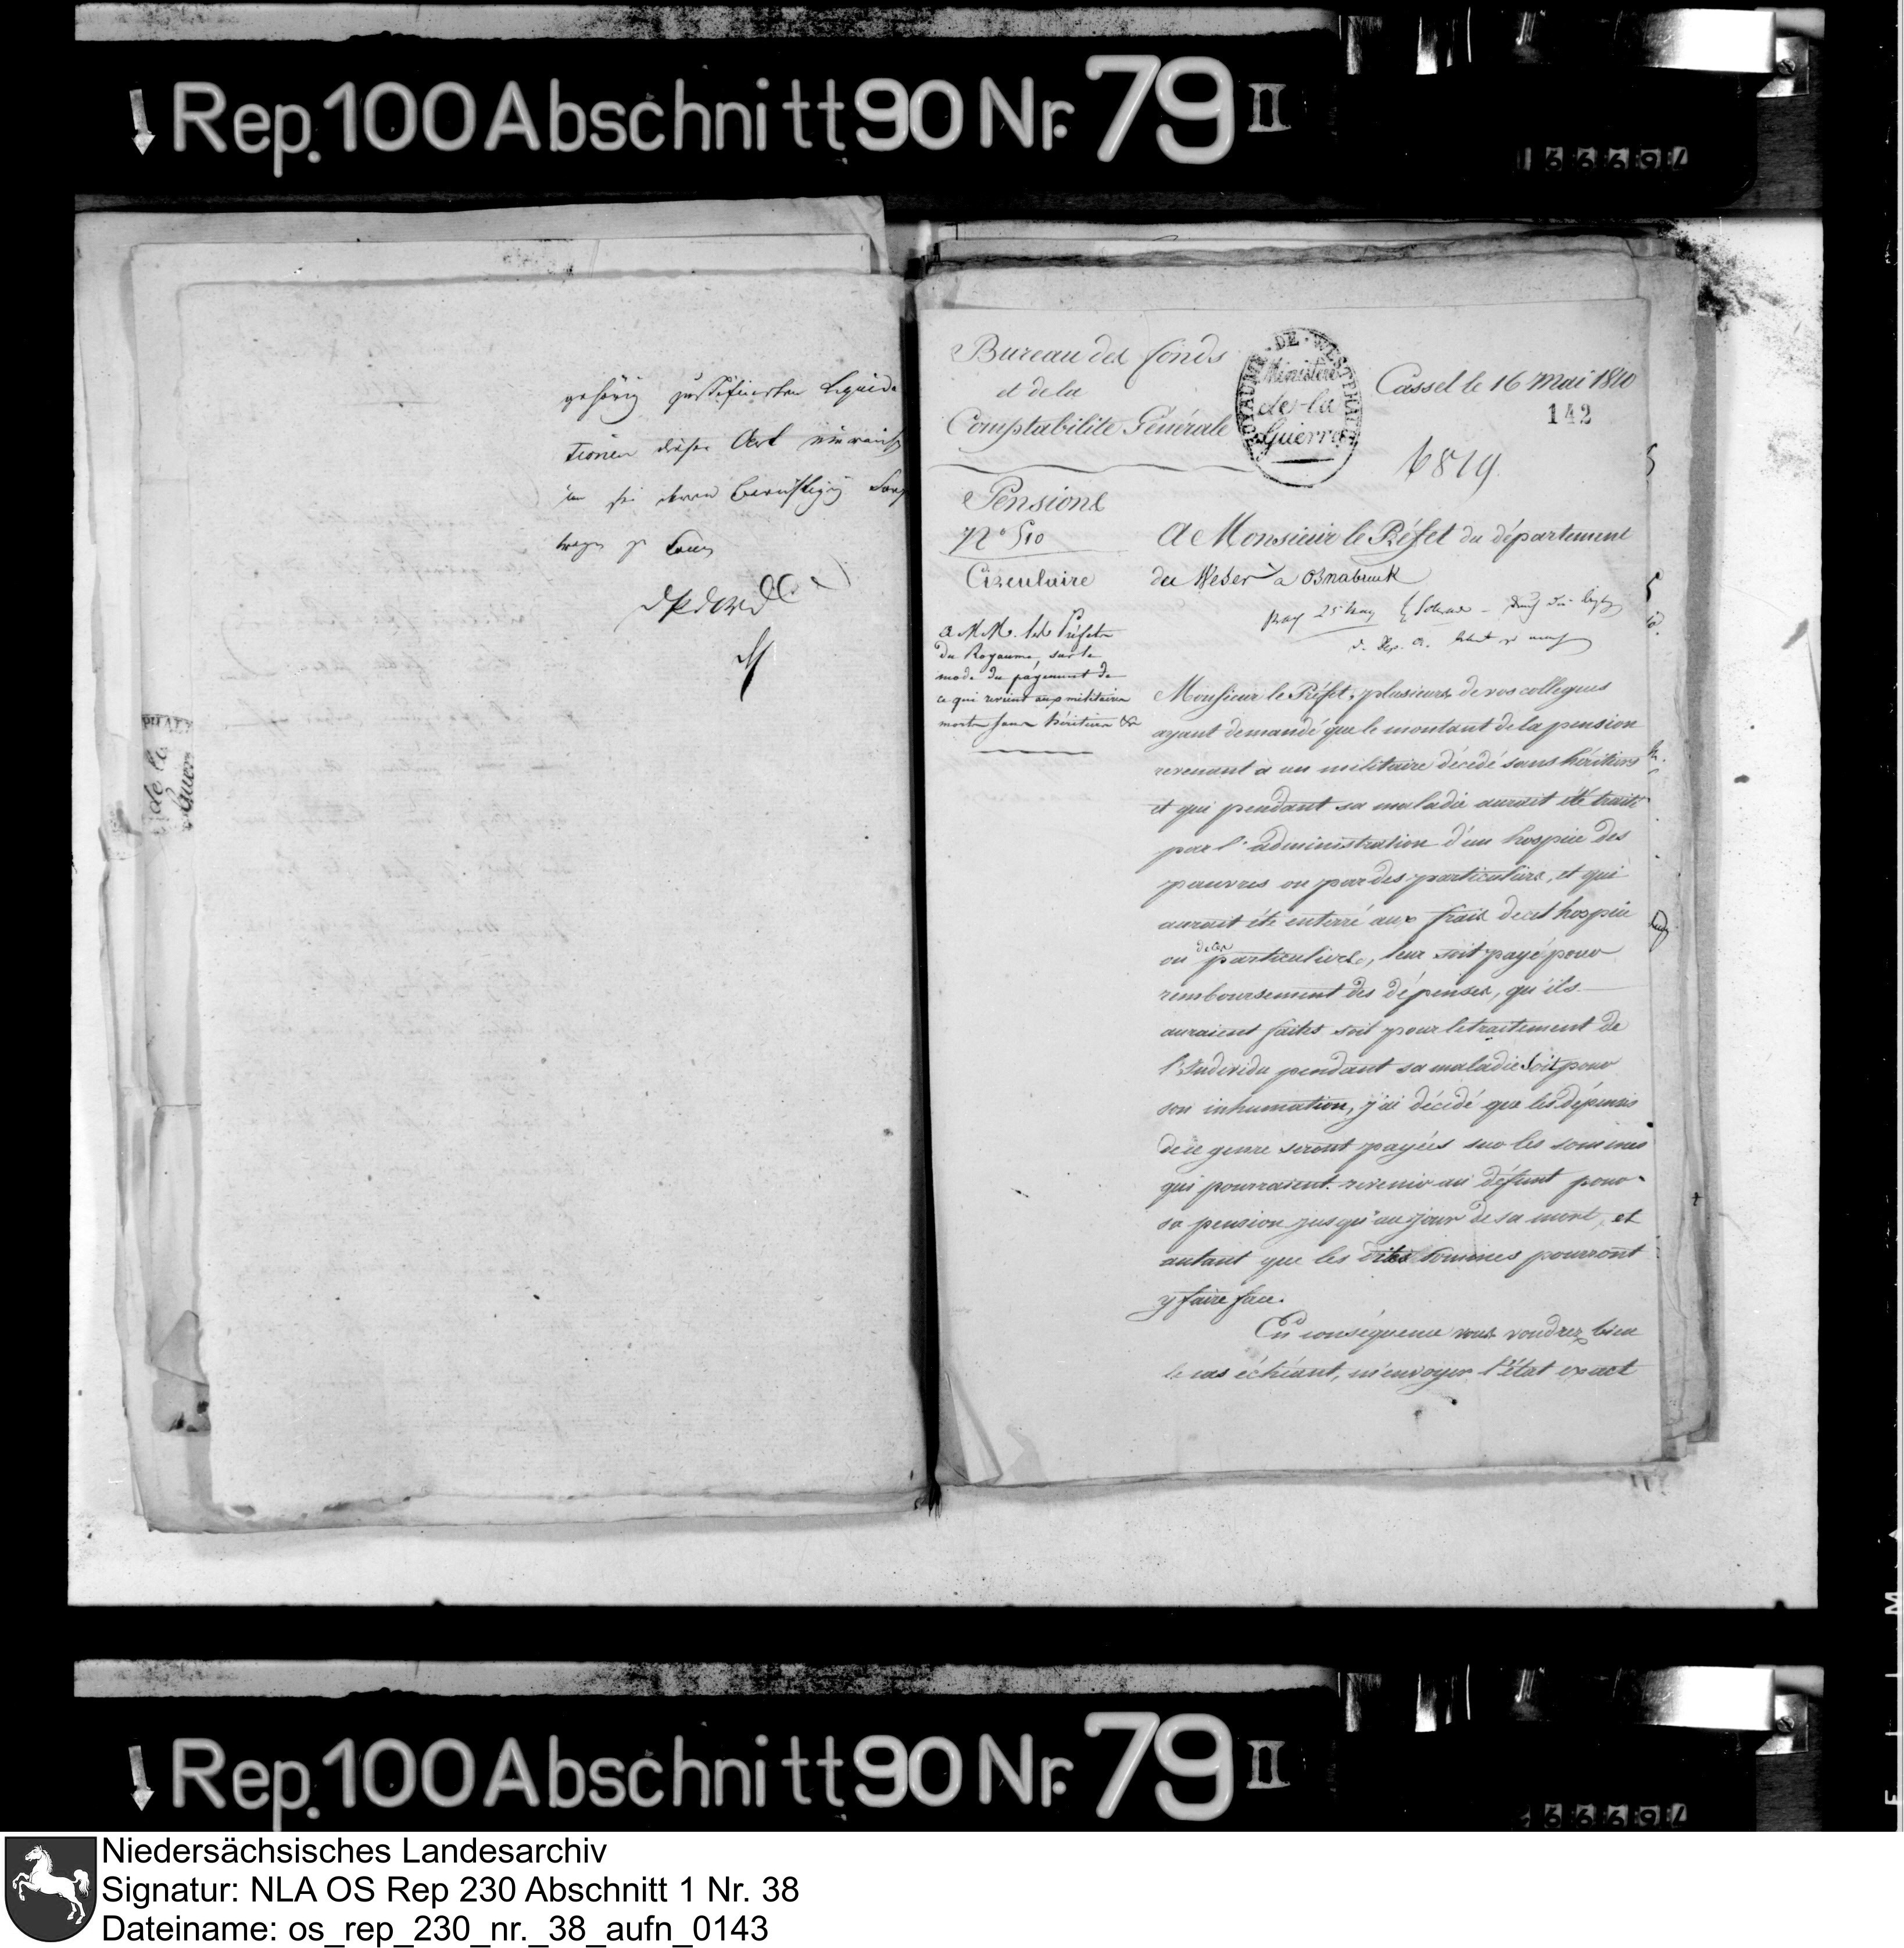 Rep. 100 Abschnitt 90 Nr. 79 II
gehörig justificirten Liquida
tionen dieser Art einreich
zu
Bureau des fonds
et de la
Comptabilité Générale
ROYAUME DE WESTPHALIE
Ministère
de la
Guerre
Cassel le 16 Mai 1810
142
6819
Pensions
No. 510
Circulaire
a MM. les Préfets
du Royaume, sur le
mode du payement de
ce qui revient aux militaires
morts sans héritiers &c
A Monsieur le Préfet du département
du Weser à Osnabruck
Monsieur le Préfet, plusieurs de vos collegues
ayant demandé que le montant de la pension
revenant à un militaire décédé sans héritiers
et qui pendant sa maladie aurait été traité
par l'administration d'un hospice des
pauvres ou par des particuliers, et qui
aurait été enterré aux frais de cet hospice
ou de ces particuliers, leur soit payé pour
remboursement des dépenses, qu'ils
auraient faites soit pour le traitement de
l'Individu pendant sa maladie soit pour
son inhumation, j'ai décidé que les dépenses
de ce genre seront payées sur les sommes
qui pourraient revenir au défunt pour
sa pension jusqu'au jour de sa mort, et
autant que les dites sommes pourront
y faire face.
En conséquence vous voudrez bien
le cas échéant, m'envoyer l'état exact
PHALI
de la
Guer
Rep. 100 Abschnitt 90 Nr. 79 II
Niedersächsisches Landesarchiv
Signatur: NLA OS Rep 230 Abschnitt 1 Nr. 38
Dateiname: os_rep_230_nr._38_aufn_0143